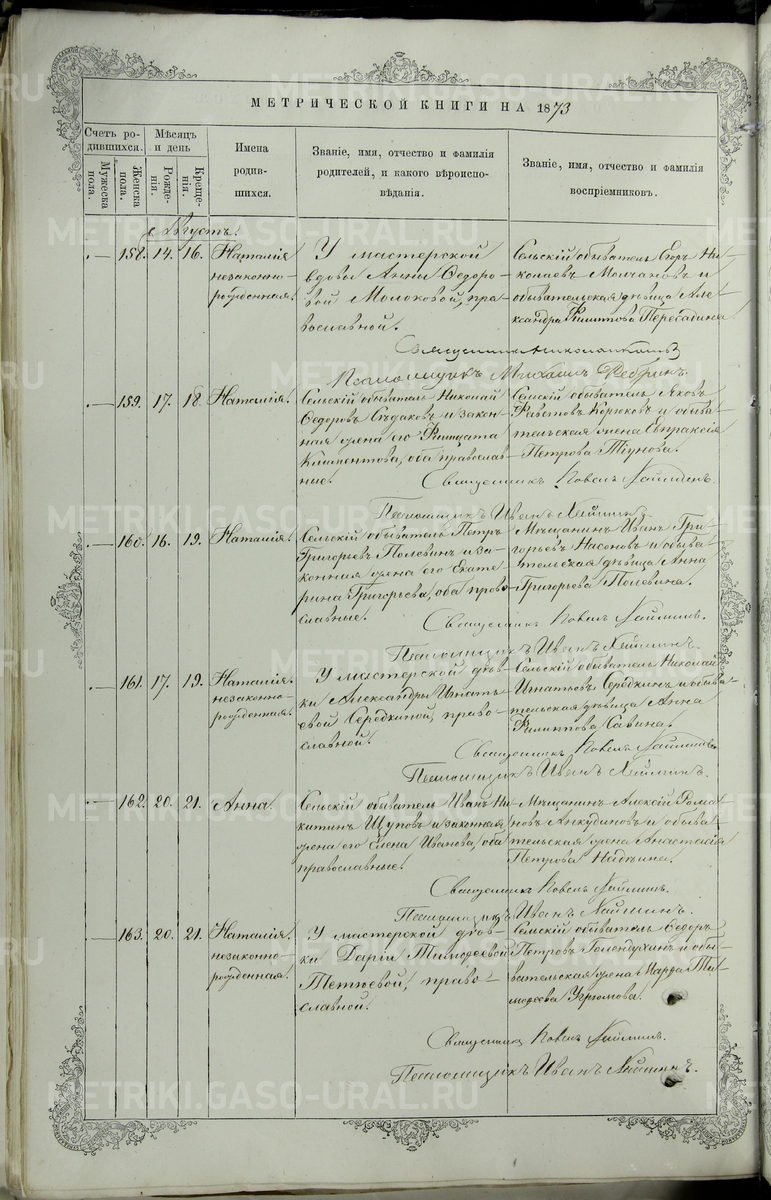 МЕТРИЧЕСКОЙ КНИГИ НА 1873
Счетъ ро-
дившихся.
Мѣсяцъ
и день
Мужеска
пола.
Женска
пола.
Рожде-
нія.
Креще-
нія.
Имена
родив-
шихся.
Званіе, имя, отчество и фамилія
родителей, и какого вѣроиспо-
вѣданія.
Званіе, имя, отчество и фамилія
воспріемниковъ.
Августъ.
158. 14. 16.
Наталія
незаконно-
рожденная.
У мастерской
вдовы Анны Ѳедоро-
вой Молоковой, пра-
вославной.
Сельскій обыватель Егоръ Ни-
колаевъ Молчановъ и
обывательская дѣвица Але-
ксандра Филиппова Пересадина
Священник
Псаломщикъ Михаилъ
159. 17. 18.
Наталія.
Сельскій обыватель Николай
Ѳедоровъ Сѣдаковъ и закон-
ная жена его
Климентова, оба православ-
ные.
Сельскій обыватель Яковъ
и обыва-
тельская жена Евпраксія
Петрова Тіунова.
Священникъ
Псаломщикъ Иванъ
160. 16. 19.
Наталія.
Сельскій обыватель Петръ
Григорьевъ Половинъ и за-
конная жена его Екате-
рина Григорьева, оба право-
славные.
Мѣщанинъ Иванъ Гри-
горьевъ Насоновъ и обыва-
тельская дѣвица Анна
Григорьева Половина.
Священникъ
Псаломщикъ Иванъ
161. 17. 19.
Наталія.
незаконно-
рожденная.
У мастерской дѣв-
ки Александры Игнать-
евой Середкиной, право-
славной.
Сельскій обыватель Николай
Игнатьевъ Середкинъ и обыва-
тельская дѣвица Анна
Филиппова Савина.
Священникъ
Псаломщикъ Иванъ
162. 20. 21.
Анна.
Сельскій обыватель Иванъ Ни-
китинъ Щуповъ и законная
жена его Елена Иванова, оба
православные.
Мѣщанинъ Алексѣй Рома-
новъ Анкудиновъ и обыва-
тельская жена Анастасія
Петрова
Священникъ
Псаломщикъ Иванъ
163. 20. 21.
Наталія.
незаконно-
рожденная.
У мастерской дѣв-
ки Даріи Тимофеевой
право-
славной.
Сельскій обыватель Ѳедоръ
Петровъ Голендухинъ и обы-
вательская жена Марѳа Ти-
моѳеева Угрюмова.
Священникъ
Псаломщикъ Иванъ
METRIKI.GASO-URAL.RU